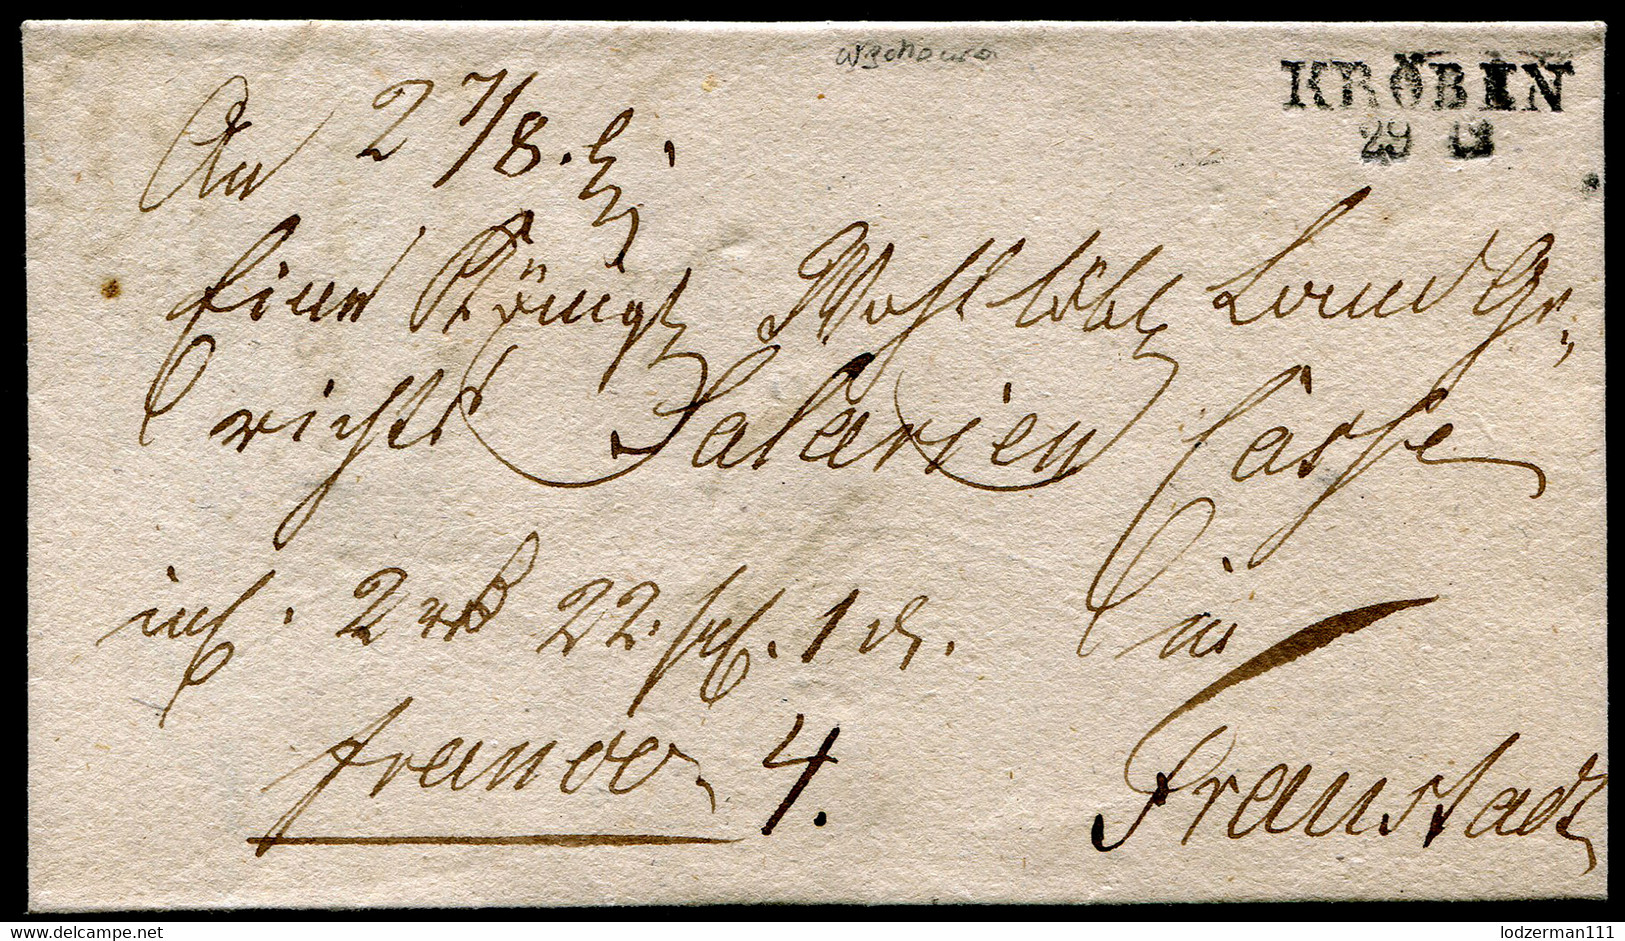 Wschowa
KRÖBEN
29
An 2 7/8.
Eine Königl Wohllöbl Land Ge-
richts Salarien Casse
in
incl. 2 rt 22 sgl. 1 d.
franco 4.
Fraustadt
www.delcampe.net
lodzerman111